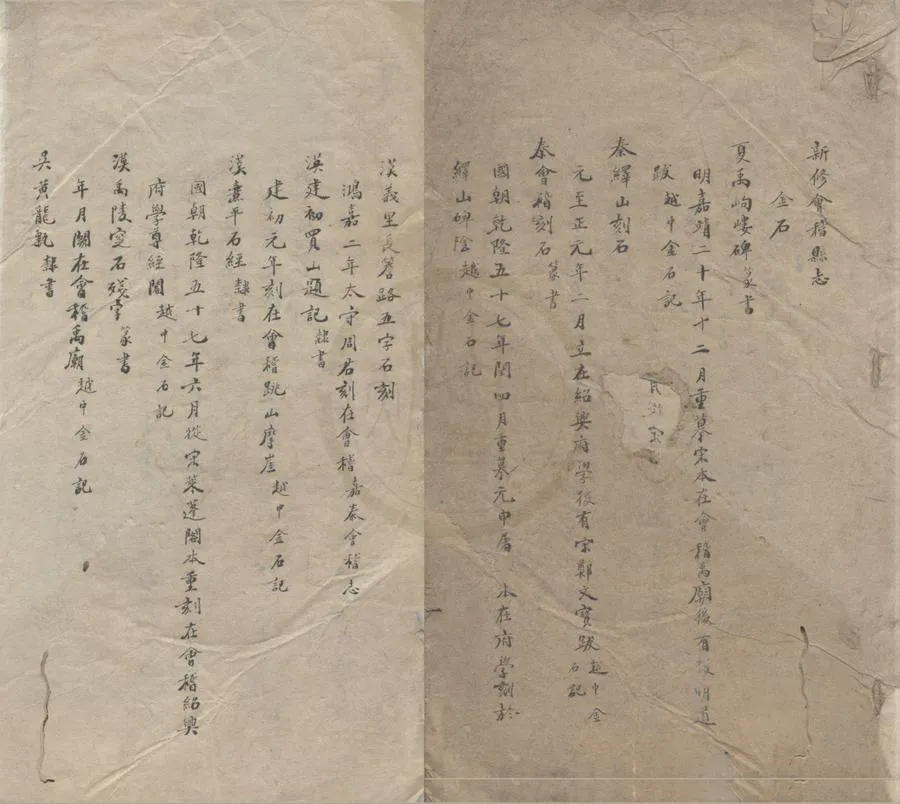 新修會稽縣志
金石
夏禹岣嶁碑 篆書
明嘉靖二十年十二月重摹宋本在會稽禹廟後有 明道
跋 越中金石記
秦繹山刻石
元至正元年二月立在紹興府學後有宋鄭文寶跋 越中金石記
秦會稽刻石 篆書
國朝乾隆五十七年閏四月重摹元申屠 本在府學刻於
繹山碑陰 越中金石記
漢義里長舊路五字石刻
鴻嘉二年太守周君刻在會稽 嘉泰會稽志
漢建初買山題記 隸書
建初元年刻在會稽跳山摩崖 越中金石記
漢熹平石經 隸書
國朝乾隆五十七年六月從宋蓬閣本重刻在會稽紹興
府學尊經閣 越中金石記
漢禹陵窆石殘字 篆書
年月闕在會稽禹廟 越中金石記
吳黃龍甎 隸書